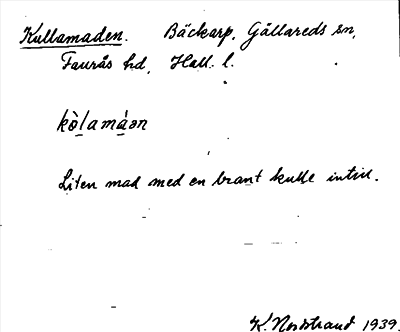 Kullamaden. Bäckarp, Gällareds sn,
Faurås hd, Hall. l.
kòlamáən
Liten mad med en brant kulle intill.
K. Nordstrand 1939.